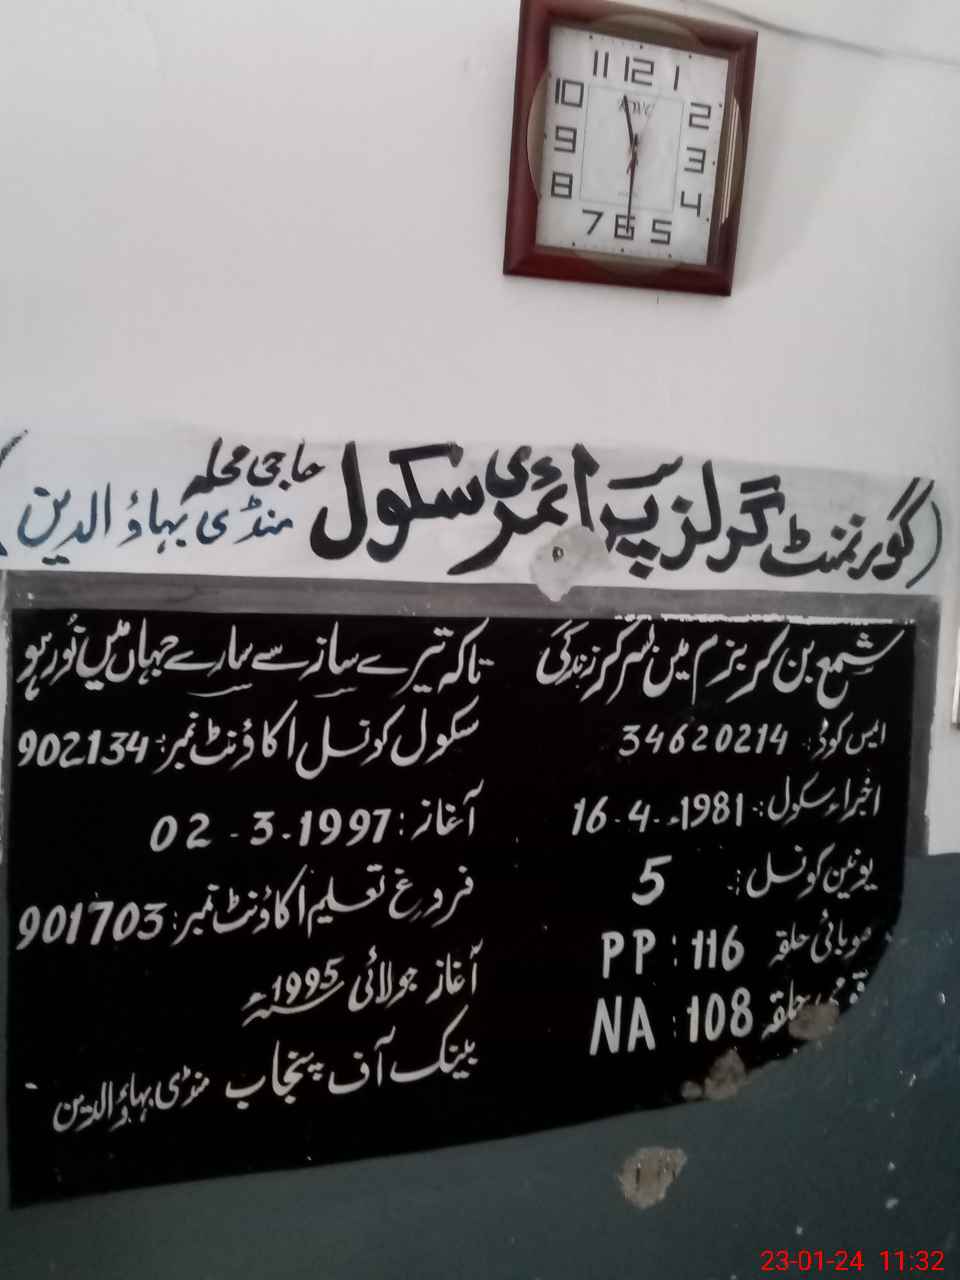 11 12 1
10 2
9 3
8 4
7 6 5
(گورنمنٹ گرلز پرائمری سکول حاجی محلہ
منڈی بہاؤالدین)
شمع بن کر بزم میں سر کر زندگی
تاکہ تیرے ساز سے سارے جہاں میں نور ہو
ایس کوڈ: 34620214
سکول کونسل اکاؤنٹ نمبر: 902134
اجراء سکول: 16-4-1981ء
آغاز: 02-3-1997
یونین کونسل: 5
فروغ تعلیم اکاؤنٹ نمبر: 901703
صوبائی حلقہ PP: 116
آغاز جولائی 1995ء
قومی حلقہ NA: 108
بینک آف پنجاب منڈی بہاؤالدین
23-01-24 11:32